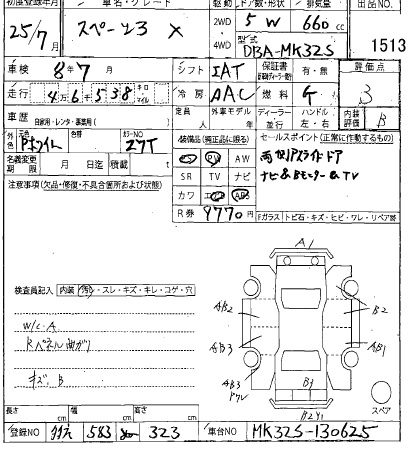 初度登録年月 車名・グレード 駆動 ドア数・形状 排気量 出品NO
25/7月 スペーシア X 2WD・4WD 5 W 660 cc 1513
型式 DBA-MK32S
車検 8年7月 シフト IAT 保証書 有・無 評価点
走行 4万6千538 キロ・マイル 冷房 AAC 燃料 G 3
車歴 自家用・レンタ・事業用( ) 定員 人 外車モデル 年 ディーラー・並行 ハンドル 左・右 内装評価 B
外色 色替 カラーNO Z7T 装備品(純正品に限る) セールスポイント(正常に作動するもの)
PS PW AW
名義変更期限 月 日迄 積載 t SR TV ナビ
注意事項(欠品・修復・不具合箇所および状態) カワ エアB ABS ナビ&Bモニター&TV
R券 9770円 Fガラス トビ石・キズ・ヒビ・ワレ・リペア跡
A1
検査員記入 内装 汚・スレ・キズ・キレ・コゲ・穴
AB2 B2
W/C・A
AB3 AB1
Rパネル曲ガリ
キズ、B
AB3 B1 スペア
長さ cm 幅 cm 高さ cm B2Y1
登録NO 583 323 車台NO MK32S-130625